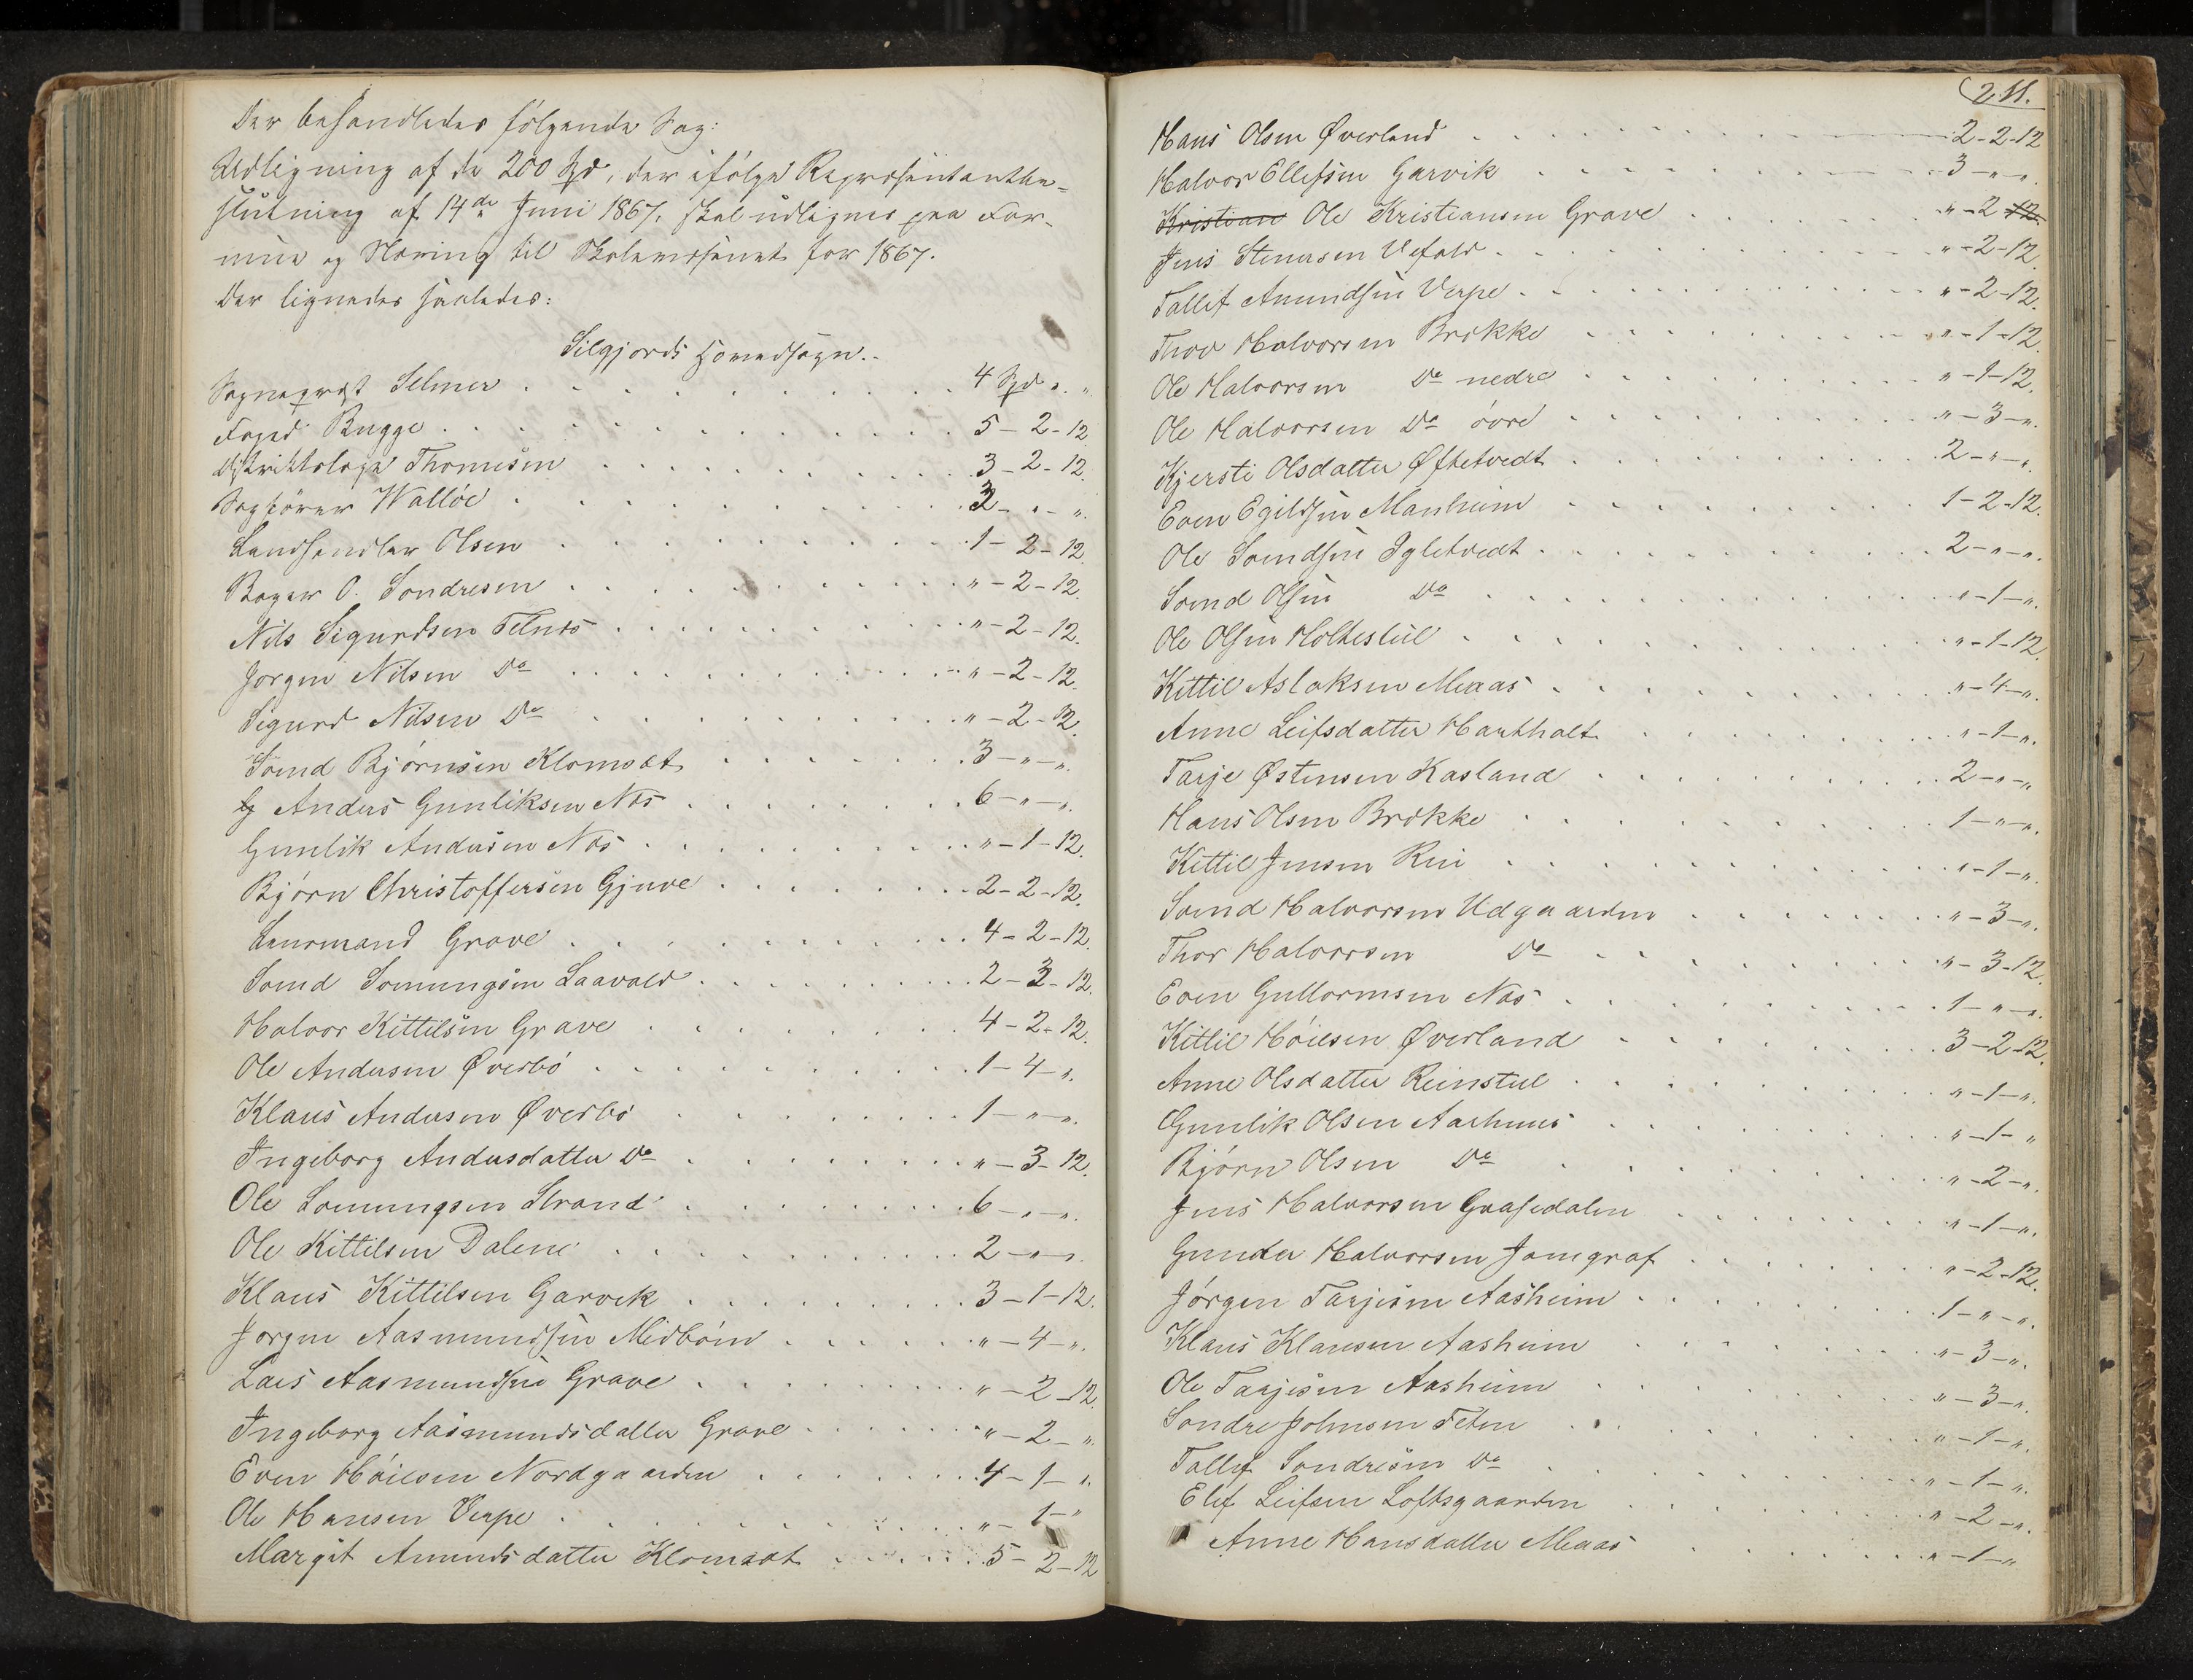 Der behandledes følgende Sag:
Udligning af de 200 Spd, der ifølge Repræsentantbe-
slutning af 14de Juni 1867, skal udlignes paa For-
mue og Næring til Skolevæsenet for 1867.
Der lignedes saaledes:
Silgjords Hovedsogn.
Sogneprest Selmer 4 Spd " "
Foged Bugge 5-2-12
Distriktslæge Thomesen 3-2-12
Sagfører Walløe 3-"-"
Landhandler Olsen 1-2-12
Bager O. Sondresen "-2-12
Nils Sigurdsen Telnæs "-2-12
Jørgen Nilsen Do "-2-12
Sigurd Nilsen Do "-2-12
Svend Bjørnsen Klomset 3-"-"
Anders Gunliksen Næs 6-"-"
Gunlik Andersen Næs "-1-12
Bjørn Christoffersen Gjuve 2-2-12
Lensmand Grave 4-2-12
Svend Somungsen Laavald 2-3-12
Halvor Kittilsen Grave 4-2-12
Ole Andersen Øverbø 1-4-"
Klaus Andersen Øverbø 1-"-"
Ingeborg Andersdatter Do "-3-12
Ole Somungsen Strand 6-"-"
Ole Kittilsen Dalene 2-"-"
Klaus Kittilsen Garvik 3-1-12
Jørgen Aasmundsen Midbøen "-4-"
Lars Aasmundsen Grave "-2-12
Ingeborg Aasmundsdatter Grave "-2-"
Even Høiesen Nordgaarden 4-1-"
Ole Hansen Verpe "-1-"
Margit Amundsdatter Klomset 5-2-12
211.
Hans Olsen Øverland 2-2-12
Halvor Ellefsen Garvik 3-"-"
Kristian Ole Kristiansen Grave "-2-12
Jens Stenersen Vefald "-2-12
Tallef Amundsen Verpe "-2-12
Thor Halvorsen Brække "-1-12
Ole Halvorsen Do nedre "-1-12
Ole Halvorsen Do øvre "-3-"
Kjersti Olsdatter Øftetvedt 2-"-"
Even Egildsen Manheim 1-2-12
Ole Svendsen Igletvedt 2-"-"
Svend Olsen Do "-1-"
Ole Olsen Holtestul "-1-12
Kittil Aslaksen Meaas "-4-"
Anne Leifsdatter "-1-"
Tarje Østensen Kasland 2-"-"
Hans Olsen Brække 1-"-"
Kittil Jensen Rui "-1-"
Svend Halvorsen Udgaarden "-3-"
Thor Halvorsen Do "-3-12
Even Gullormsen Næs 1-"-"
Kittil Høiesen Øverland 3-2-12
Anne Olsdatter Reinstul "-1-"
Gunlik Olsen Aarhuus "-1-"
Bjørn Olsen Do "-2-"
Jens Halvorsen Grafsedalen "-1-"
Gunder Halvorsen Jomgraf "-2-12
Jørgen Tarjesen Aasheim 1-"-"
Klaus Klausen Aasheim "-3-"
Ole Tarjesen Aasheim "-3-"
Sondre Johnsen Feten "-1-"
Tallef Sondresen Do "-1-"
Elef Leifsen Loftsgaarden "-2-"
Anne Hansdatter Meaas "-1-"